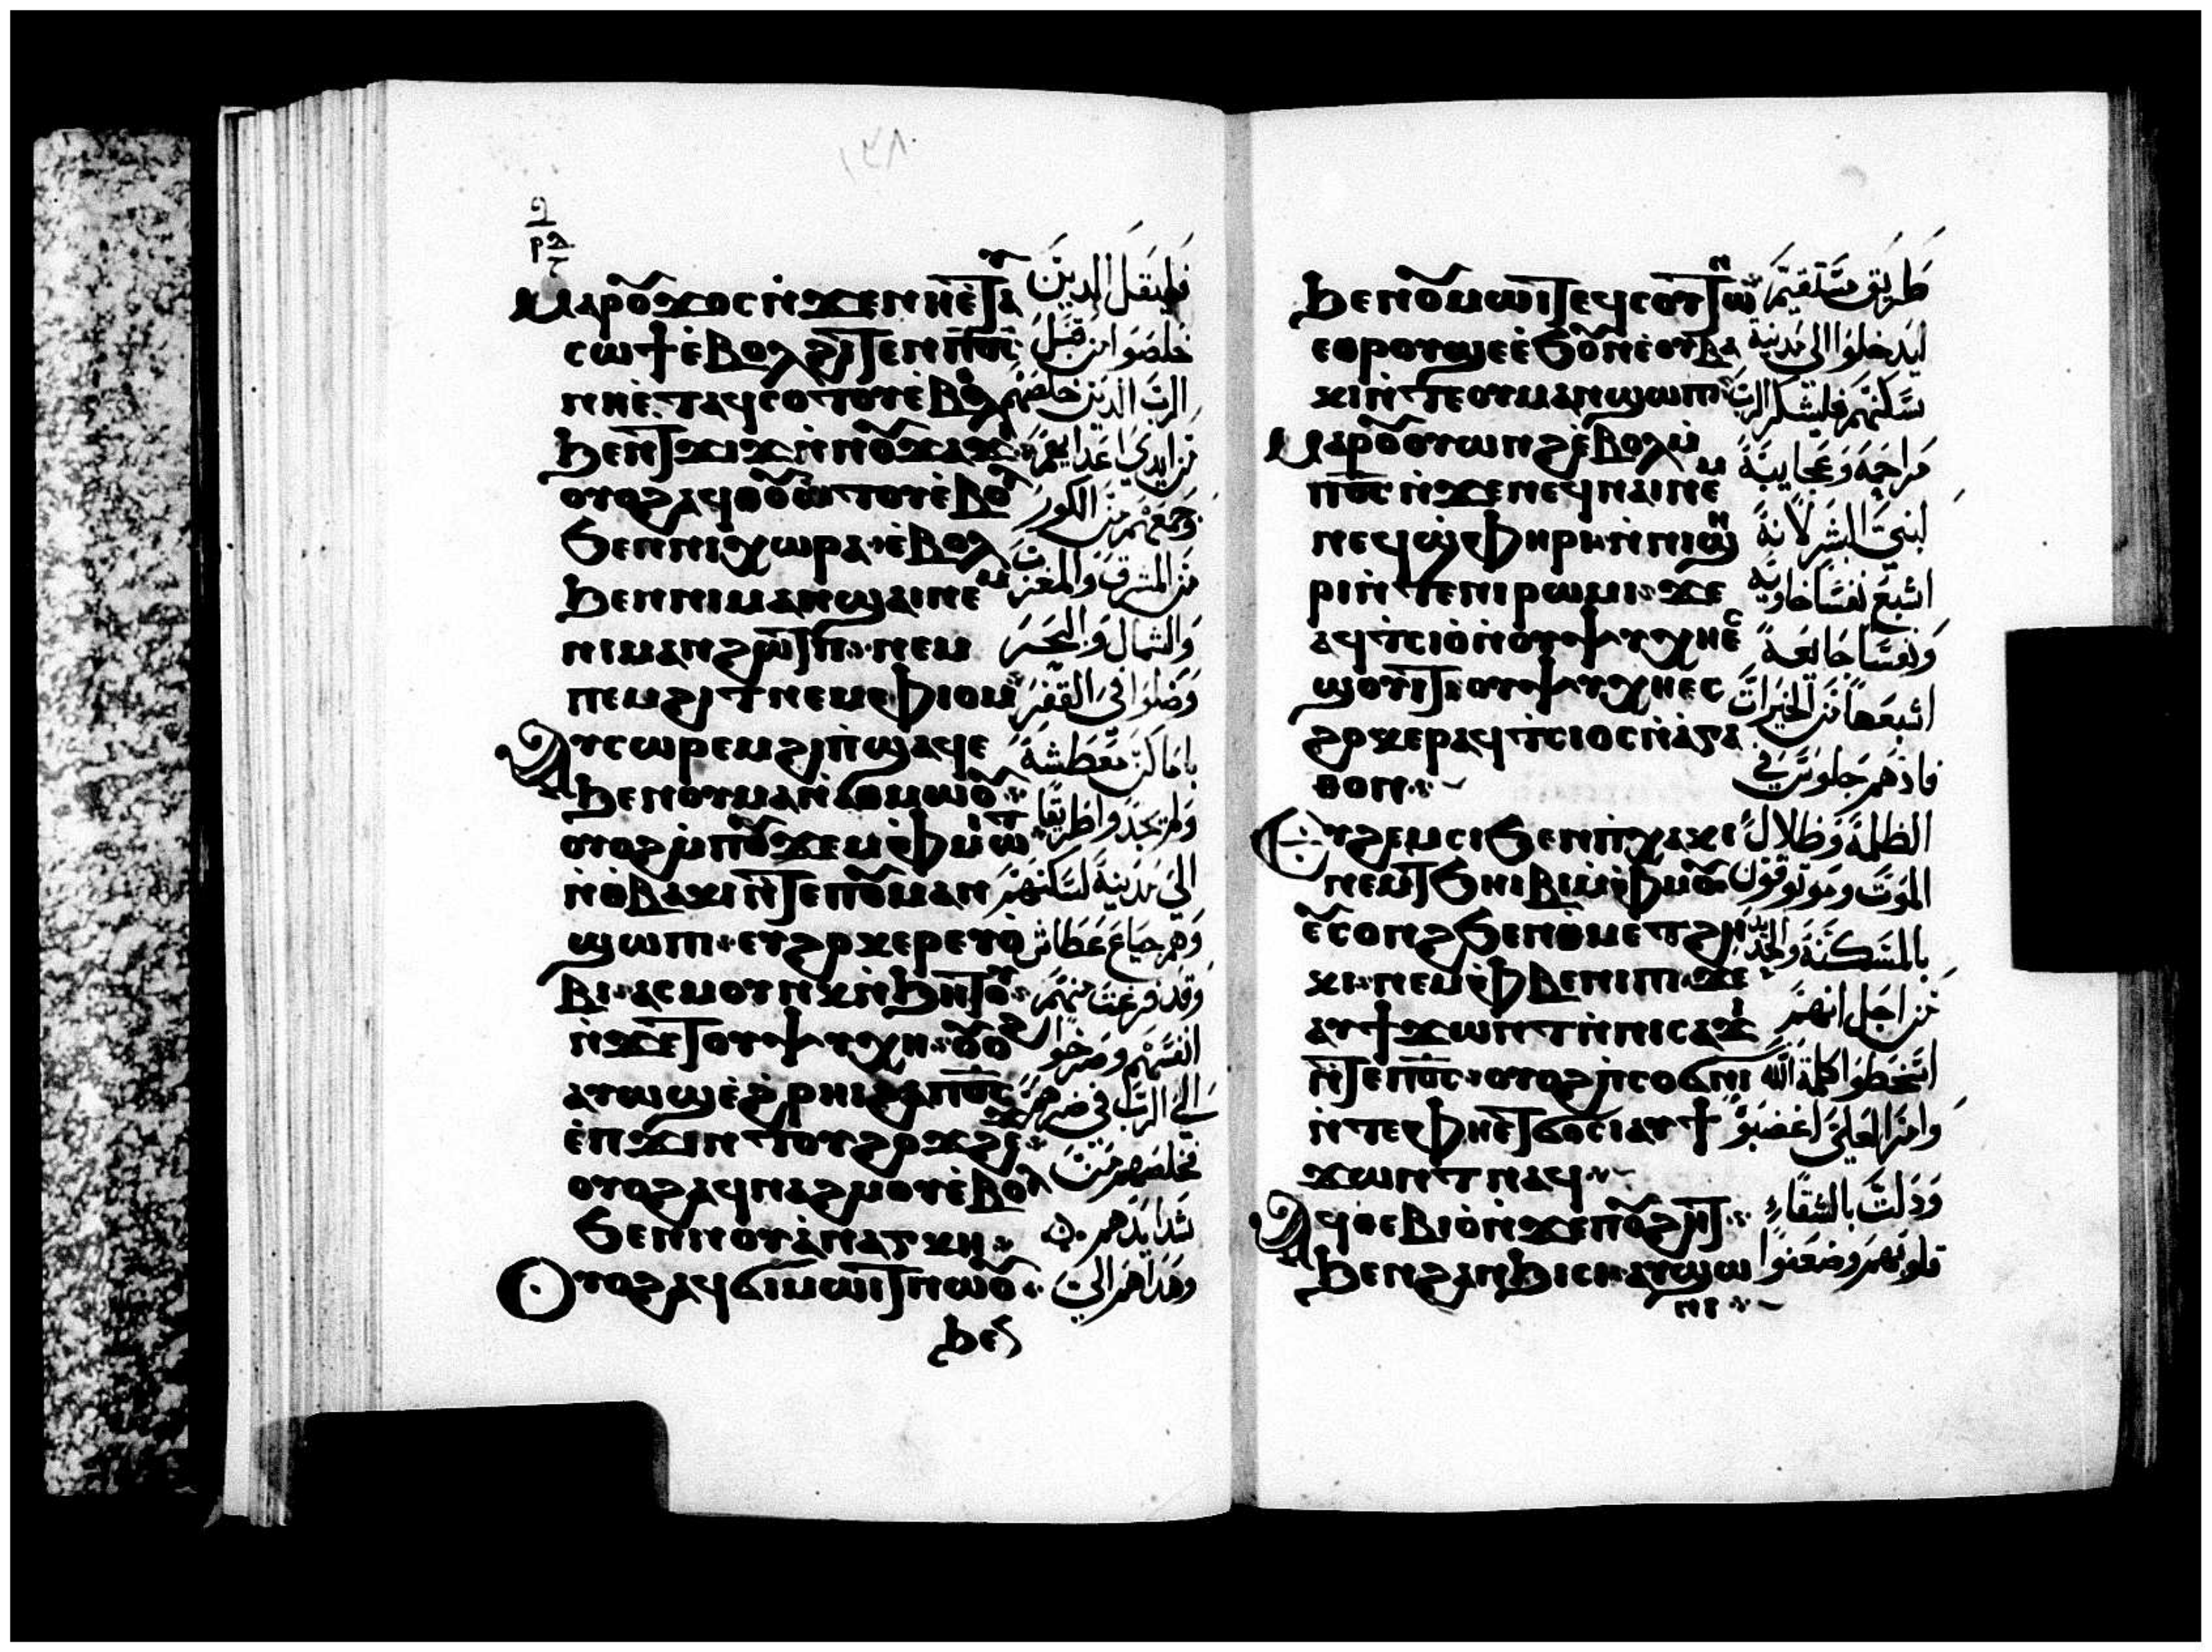 ⲙⲁⲣⲟⲩϫⲟⲥ ⲛ̇ϫⲉ ⲛⲏⲉ̇ⲧⲁⲩ
ⲥⲱϯ ⲉ̇ⲃⲟⲗϩⲓⲧⲉⲛ ⲡ̅ⲟ̅ⲥ̅
ⲛⲏⲉ̇ⲧⲁϥⲥⲟⲧⲟⲩ ⲉ̇ⲃⲟⲗ
ϧⲉⲛ ⲧϫⲓϫ ⲛ̇ⲛⲟⲩϫⲁϫⲓ
ⲟⲩⲟϩ ⲁϥⲑⲟⲩⲱⲧⲟⲩ ⲉ̇ⲃⲟⲗ
ϧⲉⲛ ⲛⲓⲭⲱⲣⲁ ⲉ̇ⲃⲟⲗ
ϧⲉⲛ ⲛⲓⲙⲁⲛϣⲁⲓ ⲛⲉⲙ
ⲛⲓⲙⲁⲛϩⲱⲧⲡ ⲛⲉⲙ
ⲡⲉⲙϩⲓⲧ ⲛⲉⲙ ⲫⲓⲟⲙ
ⲁⲩⲥⲱⲣⲉⲙ ϩⲓ ⲡ̇ϣⲁϥⲉ
ϧⲉⲛ ⲟⲩⲙⲁ ⲛ̇ⲁⲑⲙⲱⲟⲩ
ⲟⲩⲟϩ ⲙ̇ⲡⲟⲩϫⲉⲙ ⲫⲙⲱⲓⲧ
ⲛ̇ⲟⲩⲃⲁⲕⲓ ⲛ̇ⲧⲉ ⲡⲟⲩⲙⲁⲛ
ϣⲱⲡⲓ ⲉⲩϩⲟⲕⲉⲣ ⲉⲩⲟ̇
ⲃⲓ ⲁⲥⲙⲟⲩⲛⲕ ⲛ̇ϧⲏⲧⲟⲩ
ⲛ̇ϫⲉ ⲧⲟⲩⲯⲩⲭⲏ ⲟⲩⲟϩ
ⲁⲩⲱϣ ⲉ̇ϩⲣⲏⲓ ϩⲁ ⲡ̅ⲟ̅ⲥ̅
ⲉ̇ⲡϫⲓⲛⲧⲟⲩϩⲟϫϩⲉϫ
ⲟⲩⲟϩ ⲁϥⲛⲁϩⲙⲟⲩ ⲉ̇ⲃⲟⲗ
ϧⲉⲛ ⲛⲟⲩⲁ̇ⲛⲁⲅⲕⲏ
ⲟⲩⲟϩ ⲁϥϭⲓⲙⲱⲓⲧ ⲛⲱⲟⲩ
ϧⲉⲛ
فليقل الدين
خلصوا من قبل
الرب الدين خلصهم
من ايدي اعدايهم
وجمعهم من الكور
من المشرق والمغرب
والشمال والبحر
وضلوا في القفر
ولم يجدوا طريقا
الي مدينة لسكنهم
وهم جياع عطاش
انفسهم وصرخوا
الي الرب في ضرهم
فخلصهم من
شدايدهم
وهداهم الي
ϧⲉⲛ ⲟⲩⲙⲱⲓⲧ ⲉϥⲥⲟⲩⲧⲱⲛ
ⲉⲑⲣⲟⲩϣⲉ ⲉ̇ϧⲟⲩⲛ ⲉ̇ⲟⲩⲃⲁ
ⲕⲓ ⲛ̇ⲧⲉ ⲟⲩⲙⲁⲛϣⲱⲡⲓ
ⲙⲁⲣⲟⲩⲟⲩⲱⲛϩ ⲉ̇ⲃⲟⲗ ⲙ̇
ⲡ̅ⲟ̅ⲥ̅ ⲛ̇ϫⲉ ⲛⲉϥⲛⲁⲓ ⲛⲉⲙ
ⲛⲉϥϣ̇ⲫⲏⲣⲓ ⲛ̇ⲛⲓϣⲏ
ⲣⲓ ⲛ̇ⲧⲉ ⲛⲓⲣⲱⲙⲓ ϫⲉ
ⲁϥⲧ̇ⲥⲓⲟ ⲛ̇ⲟⲩⲯⲩⲭⲏ ⲉⲥ
ϣⲟⲩⲓⲧ ⲟⲩⲯⲩⲭⲏ ⲉⲥ
ϩⲟⲕⲉⲣ ⲁϥⲧ̇ⲥⲓⲟⲥ ⲛ̇ⲁ̇ⲅⲁ
ⲑⲟⲛ
ⲉⲩϩⲉⲙⲥⲓ ϧⲉⲛ ⲡ̇ⲭⲁⲕⲓ
ⲛⲉⲙ ⲧϧⲏⲓⲃⲓ ⲙ̇ⲫⲙⲟⲩ
ⲉⲩⲥⲟⲛϩ ϧⲉⲛ ⲟⲩⲙⲉⲧϩⲏ
ⲕⲓ ⲛⲉⲙ ⲫⲃⲉⲛⲓⲡⲓ ϫⲉ
ⲁⲩϯϫⲱⲛⲧ ⲛ̇ⲛⲓⲥⲁϫⲓ
ⲛ̇ⲧⲉ ⲡ̅ⲟ̅ⲥ̅ ⲟⲩⲟϩ ⲡ̇ⲥⲟϭⲛⲓ
ⲛ̇ⲧⲉ ⲫⲏⲉ̇ⲧϭⲟⲥⲓ ⲁⲩϯ
ϫⲱⲛⲧ ⲛⲁϥ
ⲁϥⲑⲉⲃⲓⲟ̇ ⲛ̇ϫⲉ ⲡⲟⲩϩⲏⲧ
ϧⲉⲛ ϩⲁⲛϧⲓⲥⲓ ⲁⲩϣⲱ
ⲛⲓ
طريق مستقيم
ليدخلوا الي مدينة
سكنهم فليشكر الرب
مراحمه وعجايبه
لبني البشر لانه
اشبع نفسا خاويه
ونفسا جايعة
اشبعها من الخيرات
فاذ هم جلوس في
الظلمة وظلال
الموت وموثوقون
بالمسكنة والحديد
من اجل انهم
اسخطوا كلمة الله
وامر العلي اغضبوا
وذلت بالشقاء
قلوبهم وضعفوا